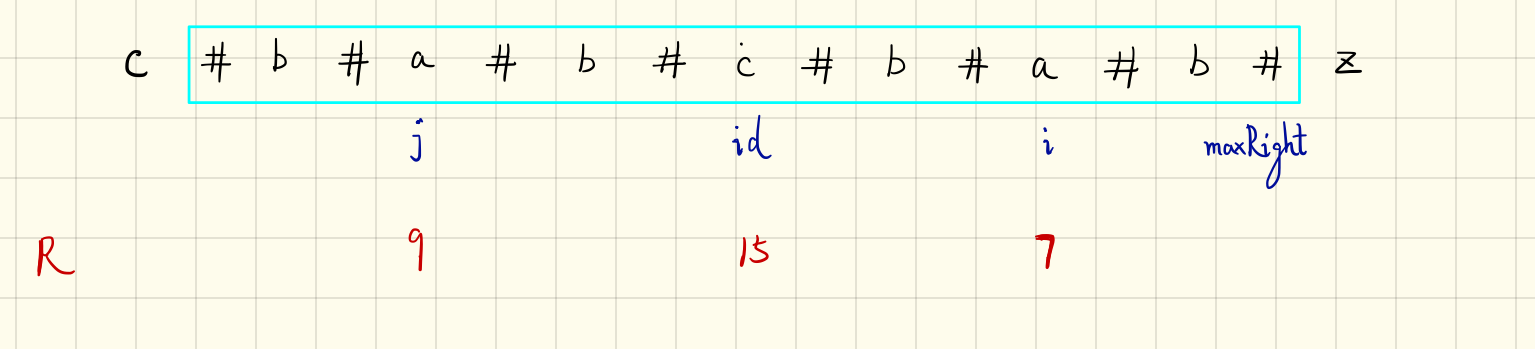 c # b # a # b # c # b # a # b # z
j id i maxRight
R 9 15 7